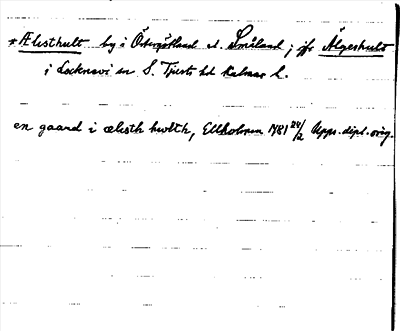 *Ælisthult by i Östergötland el. Småland; jfr Älgeshult
i Locknevi sn S. Tjusts hd Kalmar l.
en gaard i ælisth hwlth, Ellholmen 1481 24/2 Upps. dipl. orig.